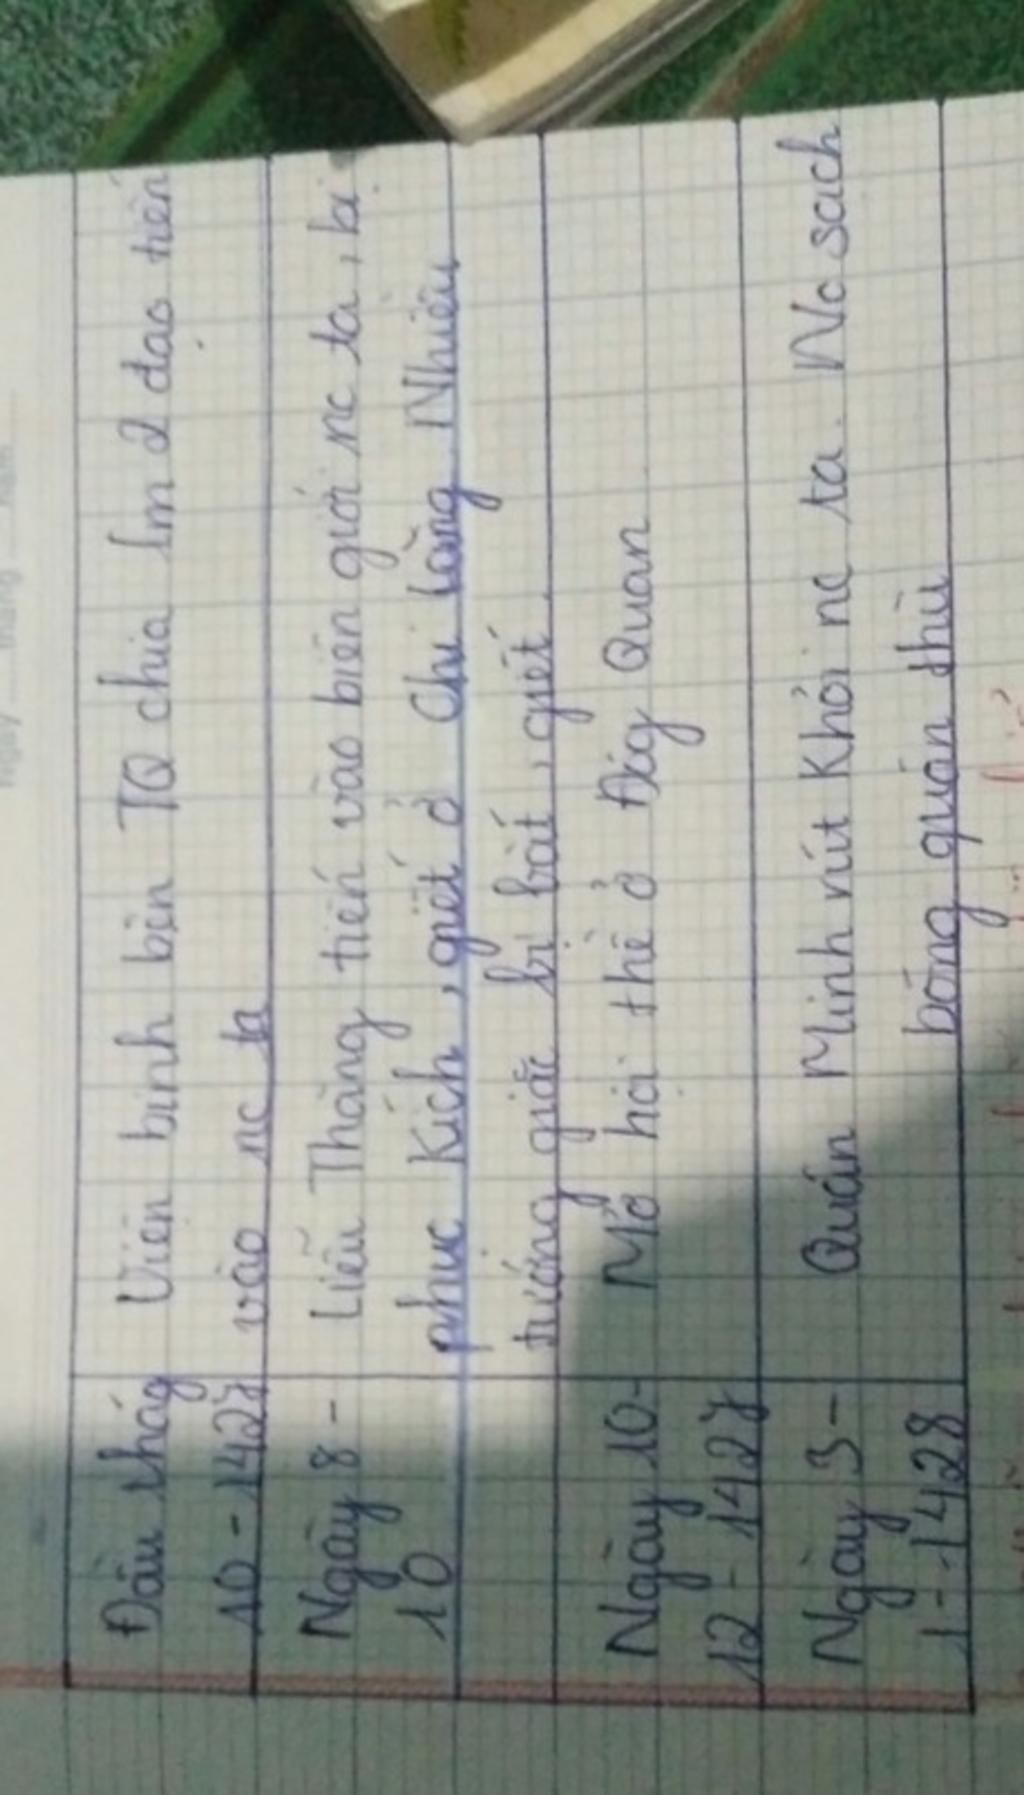 Đầu thág
10-1427
Viện binh bên TQ chia lm 2 đạo tiến
vào nc ta
Ngày 8-
10
Liễu Thăng tiến vào biên giới nc ta, bị
phục kích, giết ở Chi Lăng. Nhiều
tướng giặc bị bắt, giết.
Ngày 10-
12-1427
Mở hội thề ở Đôg Quan
Ngày 3-
1-1428
Quân Minh rút khỏi nc ta. Nc sạch
bóng quân thù